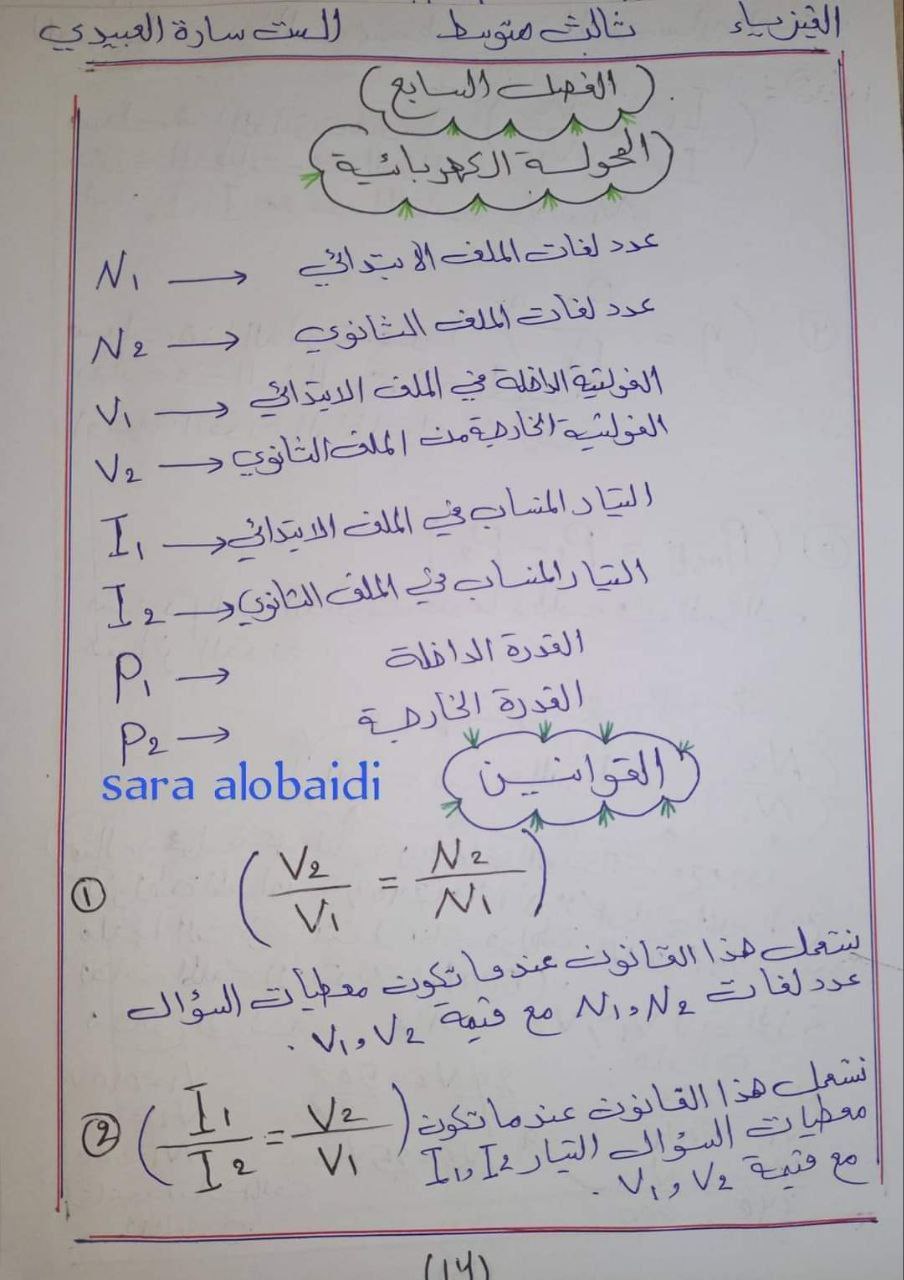 الفيزياء ثالث متوسط الست سارة العبيدي
(الفصل السابع)
المحولة الكهربائية
N1 → عدد لفات الملف الابتدائي
N2 → عدد لفات الملف الثانوي
V1 → الفولتية الداخلة في الملف الابتدائي
V2 → الفولتية الخارجة من الملف الثانوي
I1 → التيار المنساب في الملف الابتدائي
I2 → التيار المنساب في الملف الثانوي
P1 → القدرة الداخلة
P2 → القدرة الخارجة
sara alobaidi
القوانين
① (V2/V1 = N2/N1)
نستعمل هذا القانون عندما تكون معطيات السؤال
عدد لفات N1 و N2 مع قيمة V1 و V2 .
② (I1/I2 = V2/V1) نستعمل هذا القانون عندما تكون
معطيات السؤال التيار I1 و I2
مع قيمة V1 و V2 .
(14)